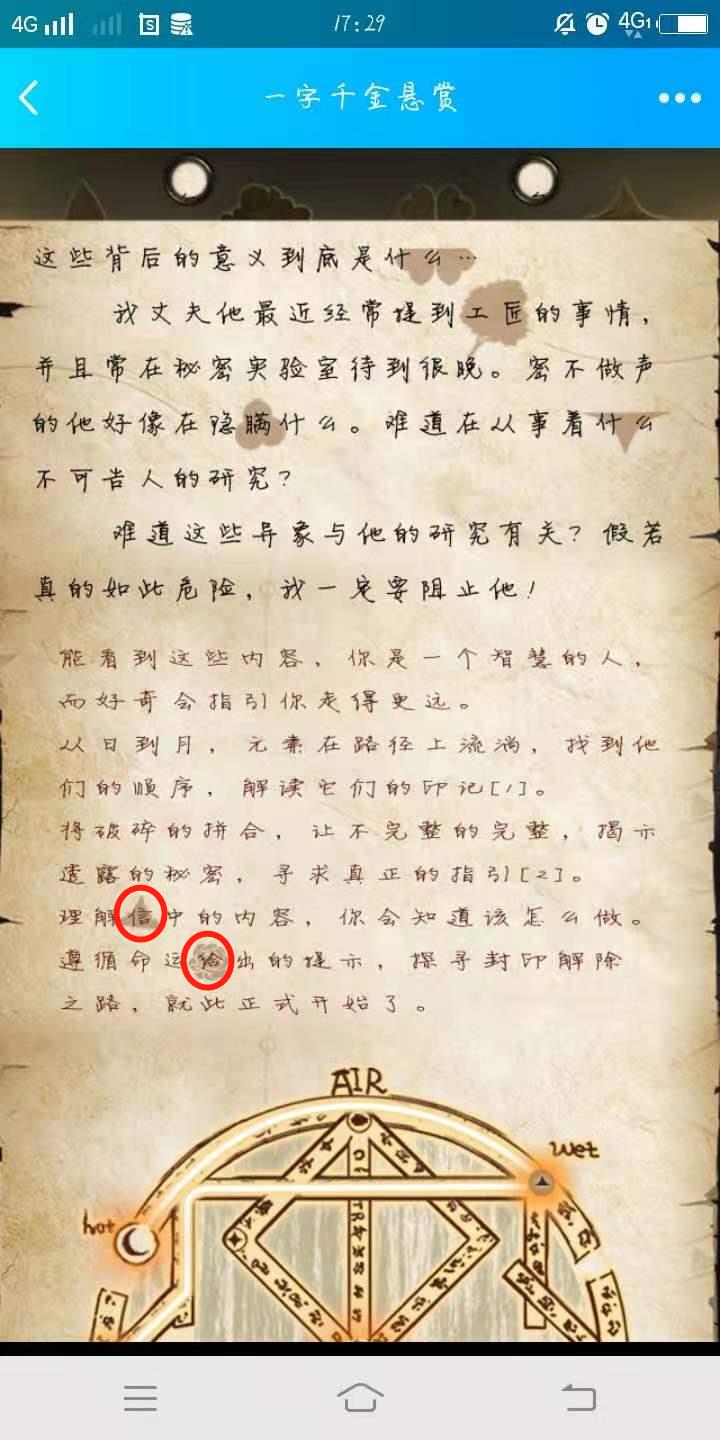 4G
17:29
4G
一字千金悬赏
这些背后的意义到底是什么…
我丈夫他最近经常提到工匠的事情，
并且常在秘密实验室待到很晚。密不做声
的他好像在隐瞒什么。难道在从事着什么
不可告人的研究？
难道这些异象与他的研究有关？假若
真的如此危险，我一定要阻止他！
能看到这些内容，你是一个智慧的人，
而好奇会指引你走得更远。
从日到月，元素在路径上流淌，找到他
们的顺序，解读它们的印记[1]。
将破碎的拼合，让不完整的完整，揭示
透露的秘密，寻求真正的指引[2]。
理解信中的内容，你会知道该怎么做。
遵循命运给出的提示，探寻封印解除
之路，就此正式开始了。
AIR
Wet
hot